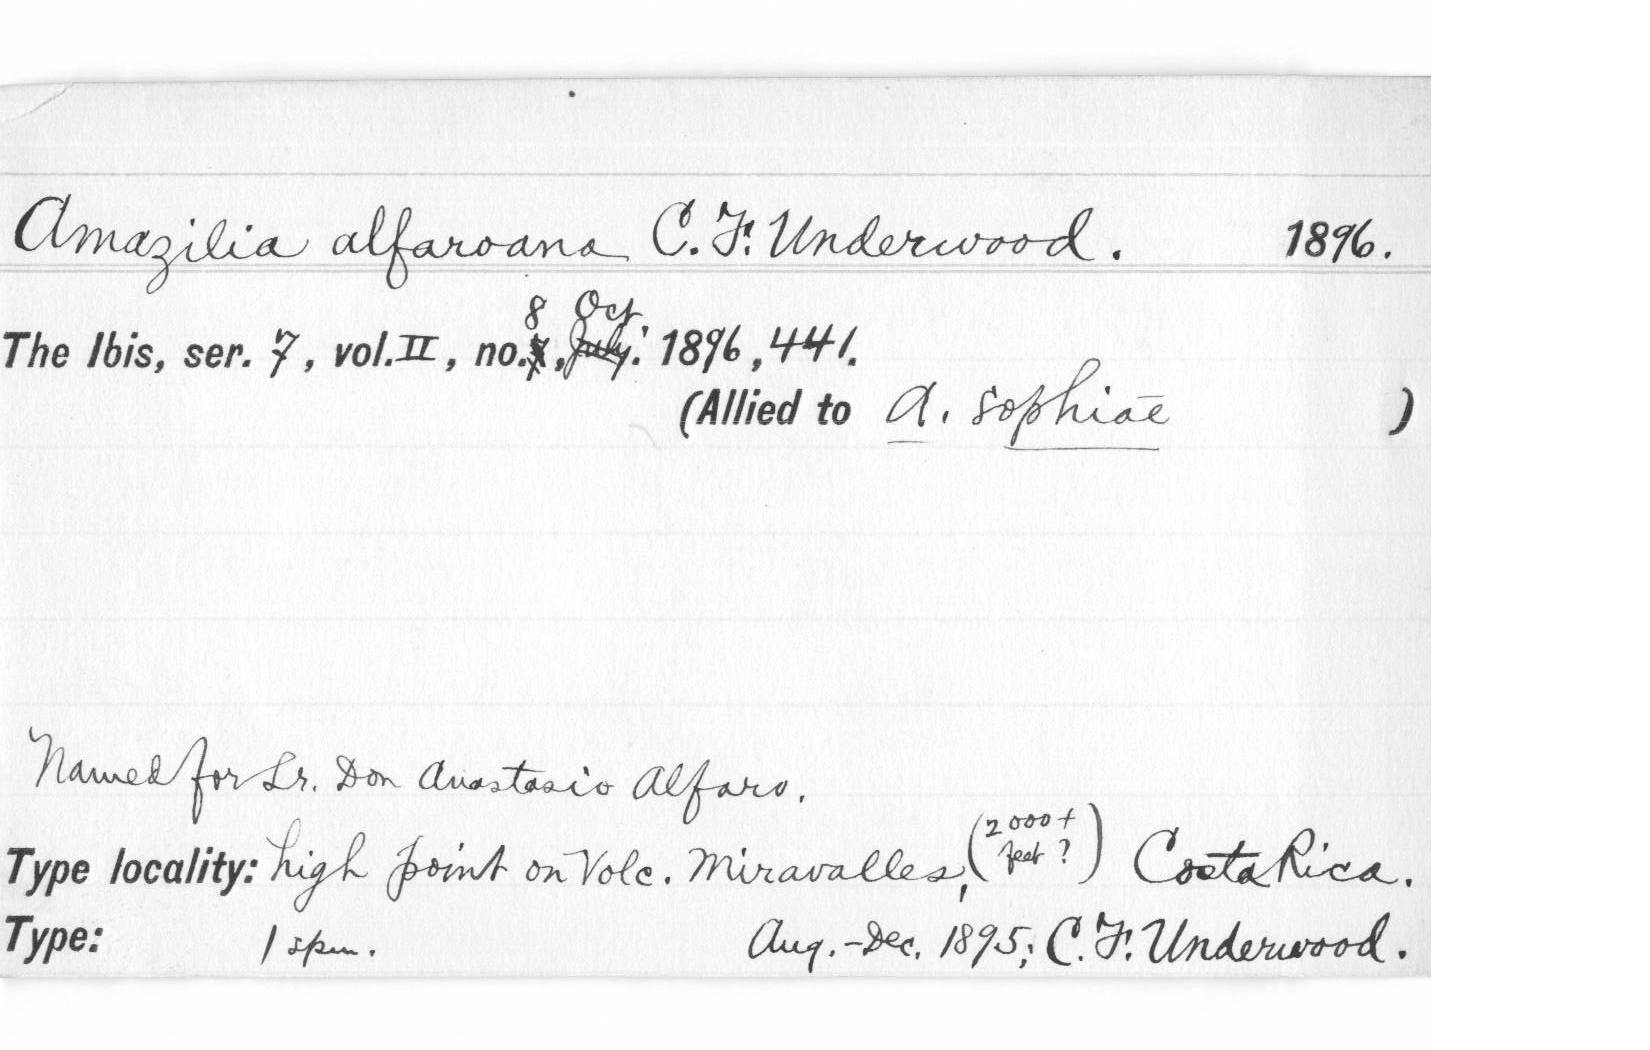 Amazilia alfaroana C. F. Underwood. 1896.
8 Oct
The Ibis, ser. 7, vol. II, no. 7, July. 1896, 441.
(Allied to A. sophiae )
Named for Sr. Don Anastasio Alfaro.
Type locality: high point on Volc. Miravalles, (2000+ feet ?) Costa Rica.
Type: 1 spm. Aug.-Dec. 1895; C. F. Underwood.